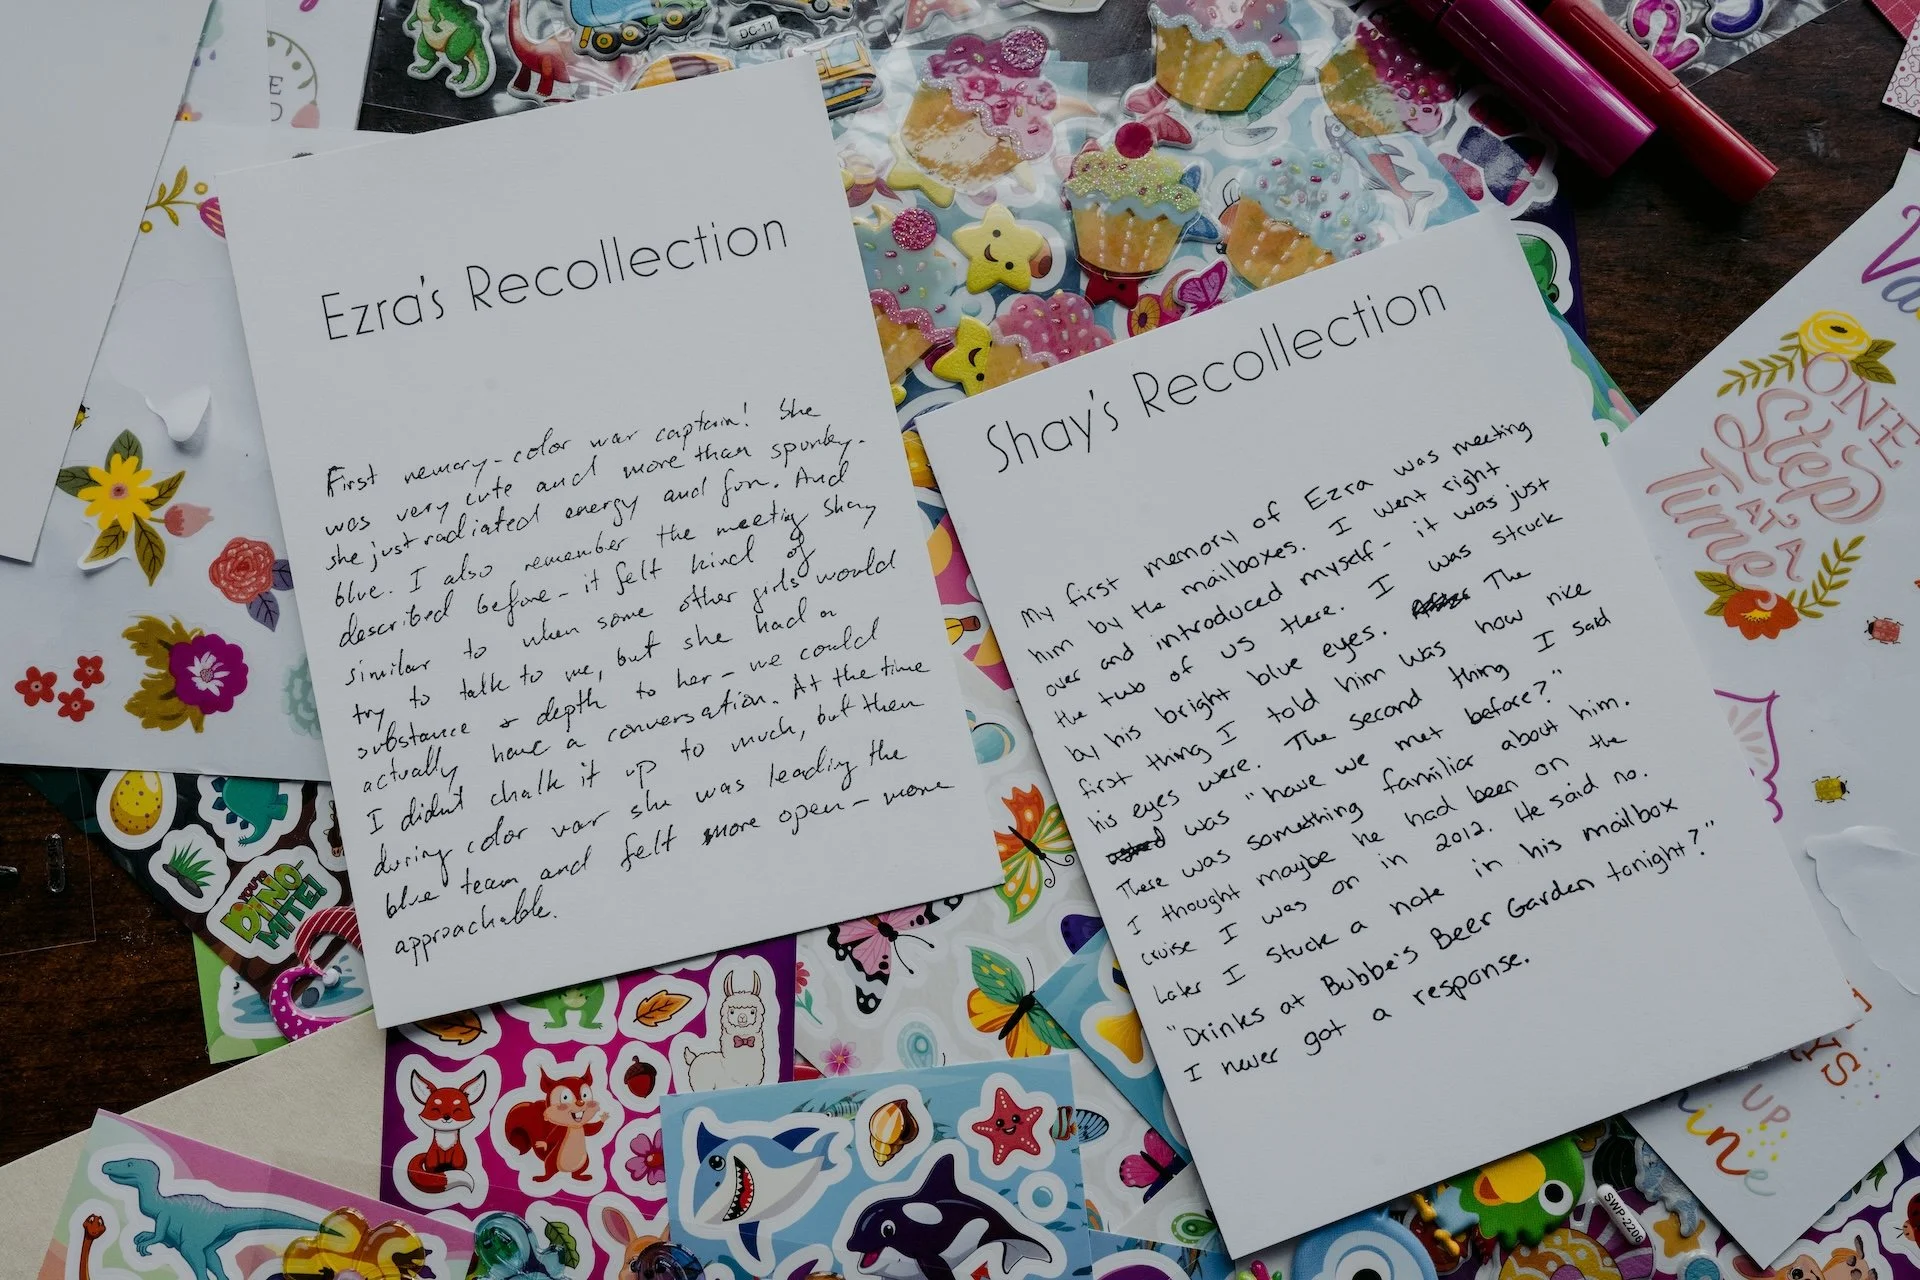 DC-11
Ezra's Recollection
First memory - color war captain! She
was very cute and more than spunky -
she just radiated energy and fun. And
blue. I also remember the meeting Shay
described before - it felt kind of
similar to when some other girls would
try to talk to me, but she had a
substance & depth to her - we could
actually have a conversation. At the time
I didn't chalk it up to much, but then
during color war she was leading the
blue team and felt more open - more
approachable.
Shay's Recollection
My first memory of Ezra was meeting
him by the mailboxes. I went right
over and introduced myself - it was just
the two of us there. I was struck
by his bright blue eyes. The
first thing I told him was how nice
his eyes were. The second thing I said
was "have we met before?"
There was something familiar about him.
I thought maybe he had been on the
cruise I was on in 2012. He said no.
Later I stuck a note in his mailbox
"Drinks at Bubbe's Beer Garden tonight?"
I never got a response.
ONE
Step
AT A
Time
YOU'RE
DINO
MITE!
UP
SWP-2206